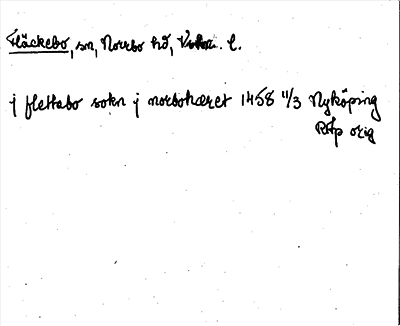 Fläckebo, sn, Norrbo hd, l.
j flettabo sokn j norboheret 1458 11/3 Nyköping
RAp orig